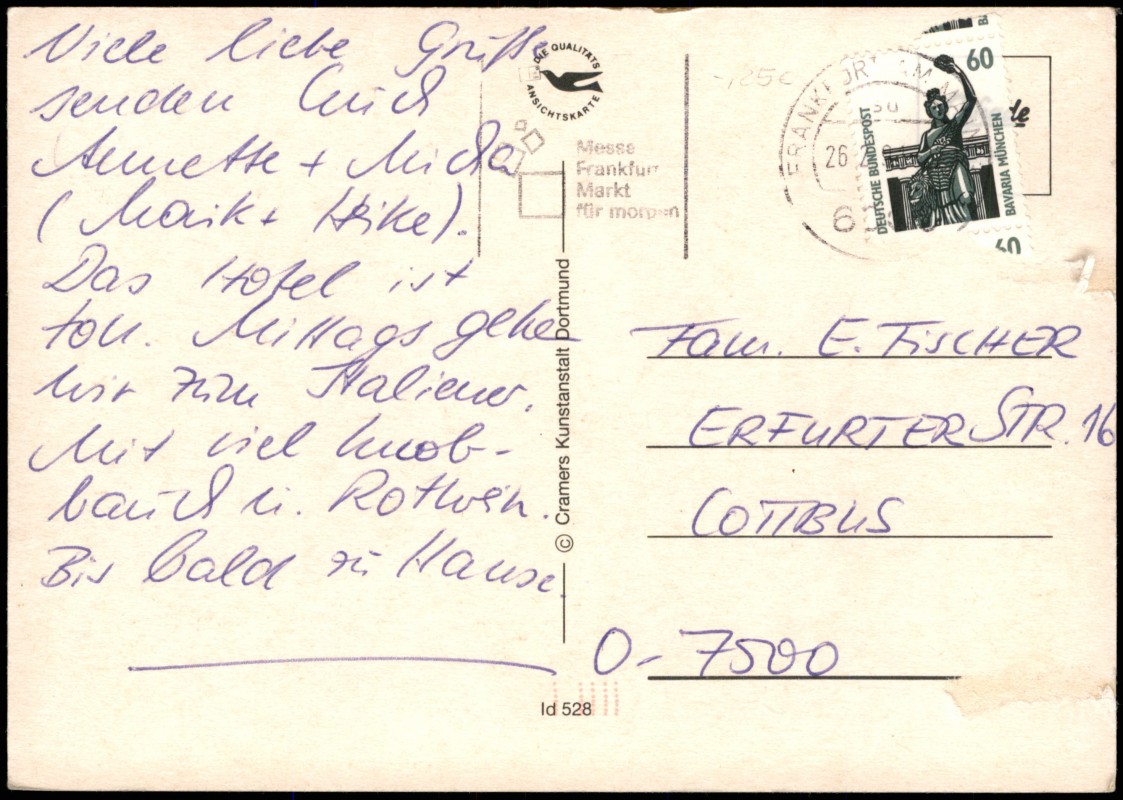 Viele liebe Grüße
senden Euch
Annette + Micha
(Maik + Heike).
Das Hotel ist
toll. Mittags gehen
wir zum Italiener.
Mit viel Knob-
lauch u. Rotwein.
Bis bald zu Hause.
DIE QUALITÄTS
ANSICHTSKARTE
Messe
Frankfurt
Markt
für morgen
-,25€
FRANKFURT AM MAIN
26.2
6
60
DEUTSCHE BUNDESPOST
BAVARIA MÜNCHEN
60
© Cramers Kunstanstalt Dortmund
Fam. E. FISCHER
ERFURTER STR. 16
COTTBUS
O-7500
Id 528